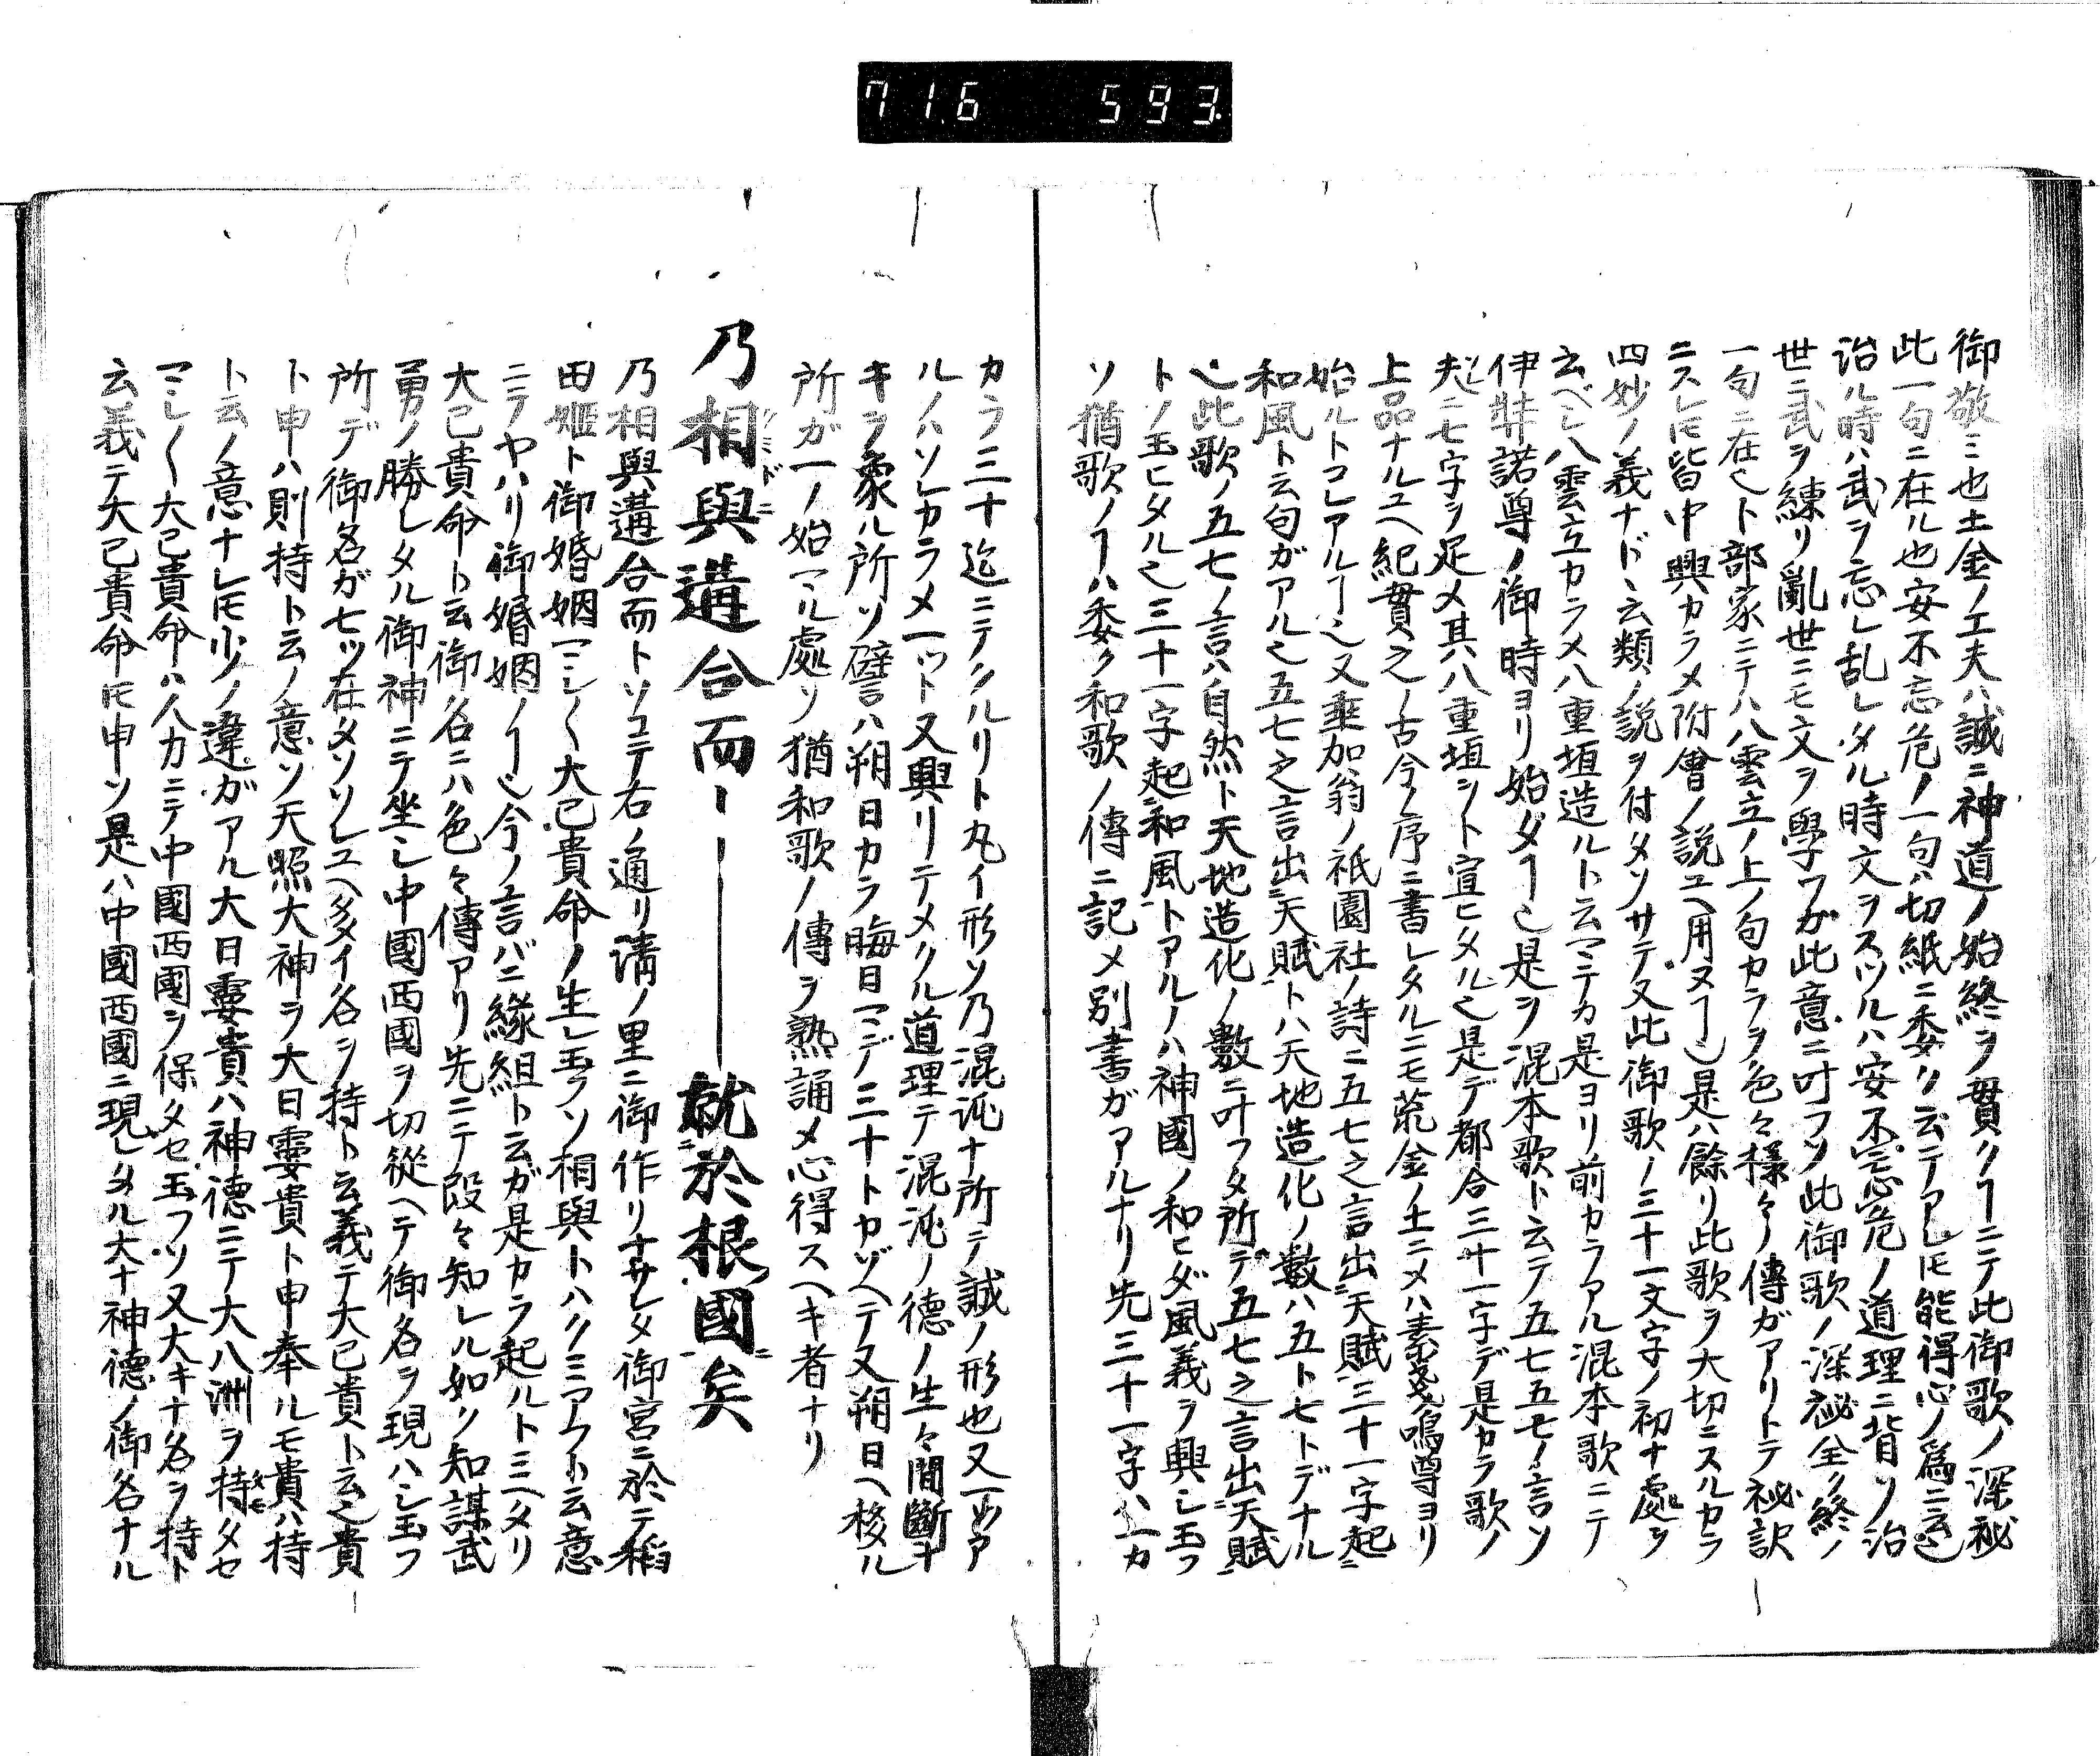 716 593
御敬ミ也土金ノ工夫ハ誠ニ神道ノ始終ヲ貫クヿニテ此御歌ノ深祕
此一句ニ在ル也安不忘危ノ一句ハ切紙ニ委ク云テアレ𪜈能得心ノ爲ニ云也
治ル時ハ武ヲ忘レ乱レタル時文ヲスツルハ安不忘危ノ道理ニ背ソ治
世ニ武ヲ練リ亂世ニモ文ヲ學フガ此意ニ叶フソ此御歌ノ深祕全ク終ノ
一句ニ在也卜部家ニテハ八雲立ノ上ノ句カラヲ色々様々ノ傳ガアリトテ祕訳
ニスレ𪜈皆中興カラメ附會ノ説ユヘ用ヌヿ也是ハ餘リ此歌ヲ大切ニスルカラ
四妙ノ義ナドヽ云類ノ説ヲ付タソサテ又此御歌ノ三十一文字ノ初ナ處ヲ
云ベシ八雲立カラメ八重垣造ルト云マテカ是ヨリ前カラアル混本歌ニテ
伊弉諾尊ノ御時ヨリ始ダヿ也是ヲ混本歌ト云テ五七五七ノ言ソ
夫ニ七字ヲ足メ其八重垣ヲト宣ヒタル也是デ都合三十一字デ是カラ歌ノ
上品ナルユヘ紀貫之ノ古今ノ序ニ書レタルニモ荒金ノ土ニメハ素戔嗚尊ヨリ
始ルトコレアルヿ也又垂加翁ノ祇園社ノ詩ニ五七之言出天賦三十一字起
和風ト云句ガアル也五七之言出天賦トハ天地造化ノ數ハ五ト七トデナル
也此歌ノ五七ノ言ハ自然ト天地造化ノ數ニ叶フタ所デ五七之言出天賦
トノ玉ヒタル也三十一字起和風トアルノハ神國ノ和ヒダ風義ヲ興シ玉フ
ソ猶歌ノヿハ委ク和歌ノ傳ニ記メ別書ガアルナリ先三十一字ハ一カ
カラ三十迄ニテクルリト丸イ形ソ乃混沌ナ所テ誠ノ形也又一めア
ルノハソレカラメ一ツト又興リテメクル道理テ混沌ノ德ノ生々間斷ナ
キヲ象ル所ソ譬ハ朔日カラ晦日マデノ三十トカゾヘテ又朔日ヘ移ル
所ガ一ノ始マル處ソ猶和歌ノ傳ヲ熟誦メ心得スヘキ者ナリ
乃相與遘合而ーーーー就於根國矣
乃相與遘合而トソコテ右ノ通リ清ノ里ニ御作リナサレタ御宮ニ於テ稻
田姬ト御婚姻マシ〱大己貴命ノ生レ玉フソ相與トハクミアフト云意
ニテヤハリ御婚姻ノヿ也今ノ言バニ緣組ト云ガ是カラ起ルト三ヘタリ
大己貴命ト云御名ニハ色々傳アリ先ニテ段々知レル如ク知謀武
勇ノ勝レタル御神ニテ坐シ中國西國ヲ切從ヘテ御名ヲ現ハシ玉フ
所デ御名ガ七ツ在タソソレユヘ多イ名ヲ持ト云義テ大己貴ト云也貴
ト申ハ則持ト云ノ意ソ天照大神ヲ大日孁貴ト申奉ルモ貴ハ持
ト云ノ意ナレ𪜈少ノ違ガアル大日孁貴ハ神德ニテ大八洲ヲ持タセ
マシ〱大己貴命ハ人力ニテ中國西國ヲ保タセ玉フソ又大キナ名ヲ持ト
云義テ大己貴命𪜈申ソ是ハ中國西國ニ現レタル大ナ神德ノ御名ナル